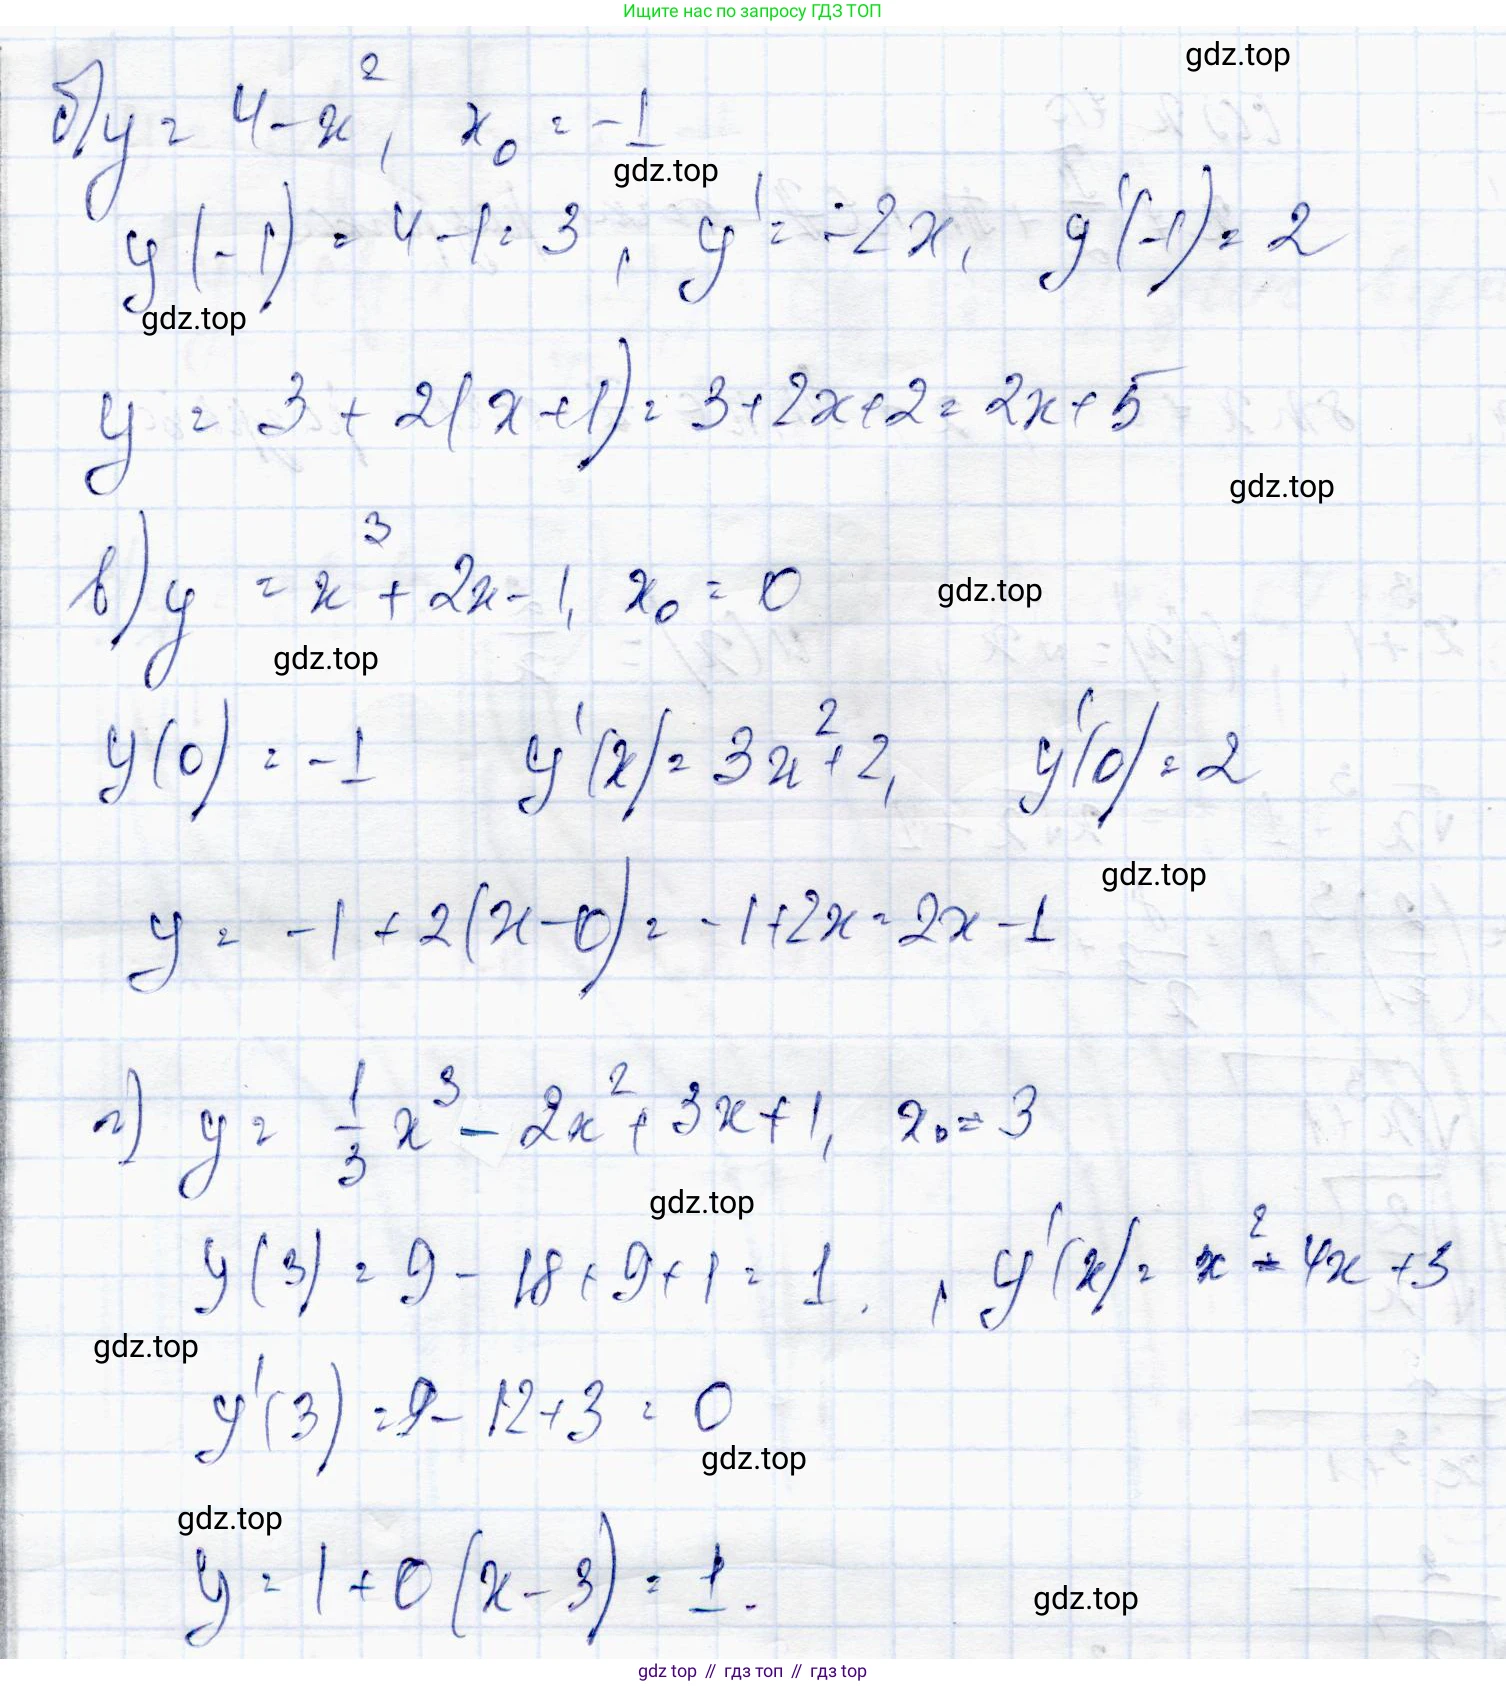 Ищите нас по запросу ГДЗ ТОП
gdz.top
б) y = 4 - x², x₀ = -1
gdz.top
y(-1) = 4 - 1 = 3, y' = -2x, y'(-1) = 2
gdz.top
y = 3 + 2(x + 1) = 3 + 2x + 2 = 2x + 5
gdz.top
в) y = x³ + 2x - 1, x₀ = 0
gdz.top
gdz.top
y(0) = -1 y'(x) = 3x² + 2, y'(0) = 2
gdz.top
y = -1 + 2(x - 0) = -1 + 2x = 2x - 1
г) y = 1/3 x³ - 2x² + 3x + 1, x₀ = 3
gdz.top
y(3) = 9 - 18 + 9 + 1 = 1, y'(x) = x² - 4x + 3
gdz.top
y'(3) = 9 - 12 + 3 = 0
gdz.top
gdz.top
y = 1 + 0(x - 3) = 1.
gdz.top
gdz top // гдз топ // гдз top